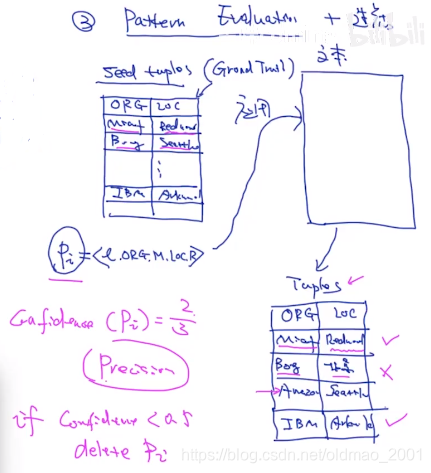 ③ Pattern Evaluation + 选择
文本
Seed tuples (Ground Truth)
ORG LOC
Micsof Redmond
Boeing Seattle
IBM
应用
Pi = <L.ORG.M.LOC.R>
Tuples
ORG LOC
Redmond
Boeing
Amazon Seattle
IBM
Confidence (Pi) = 2/3
(Precision)
if Confidence < 0.5
delete Pi
https://blog.csdn.net/oldmao_2001